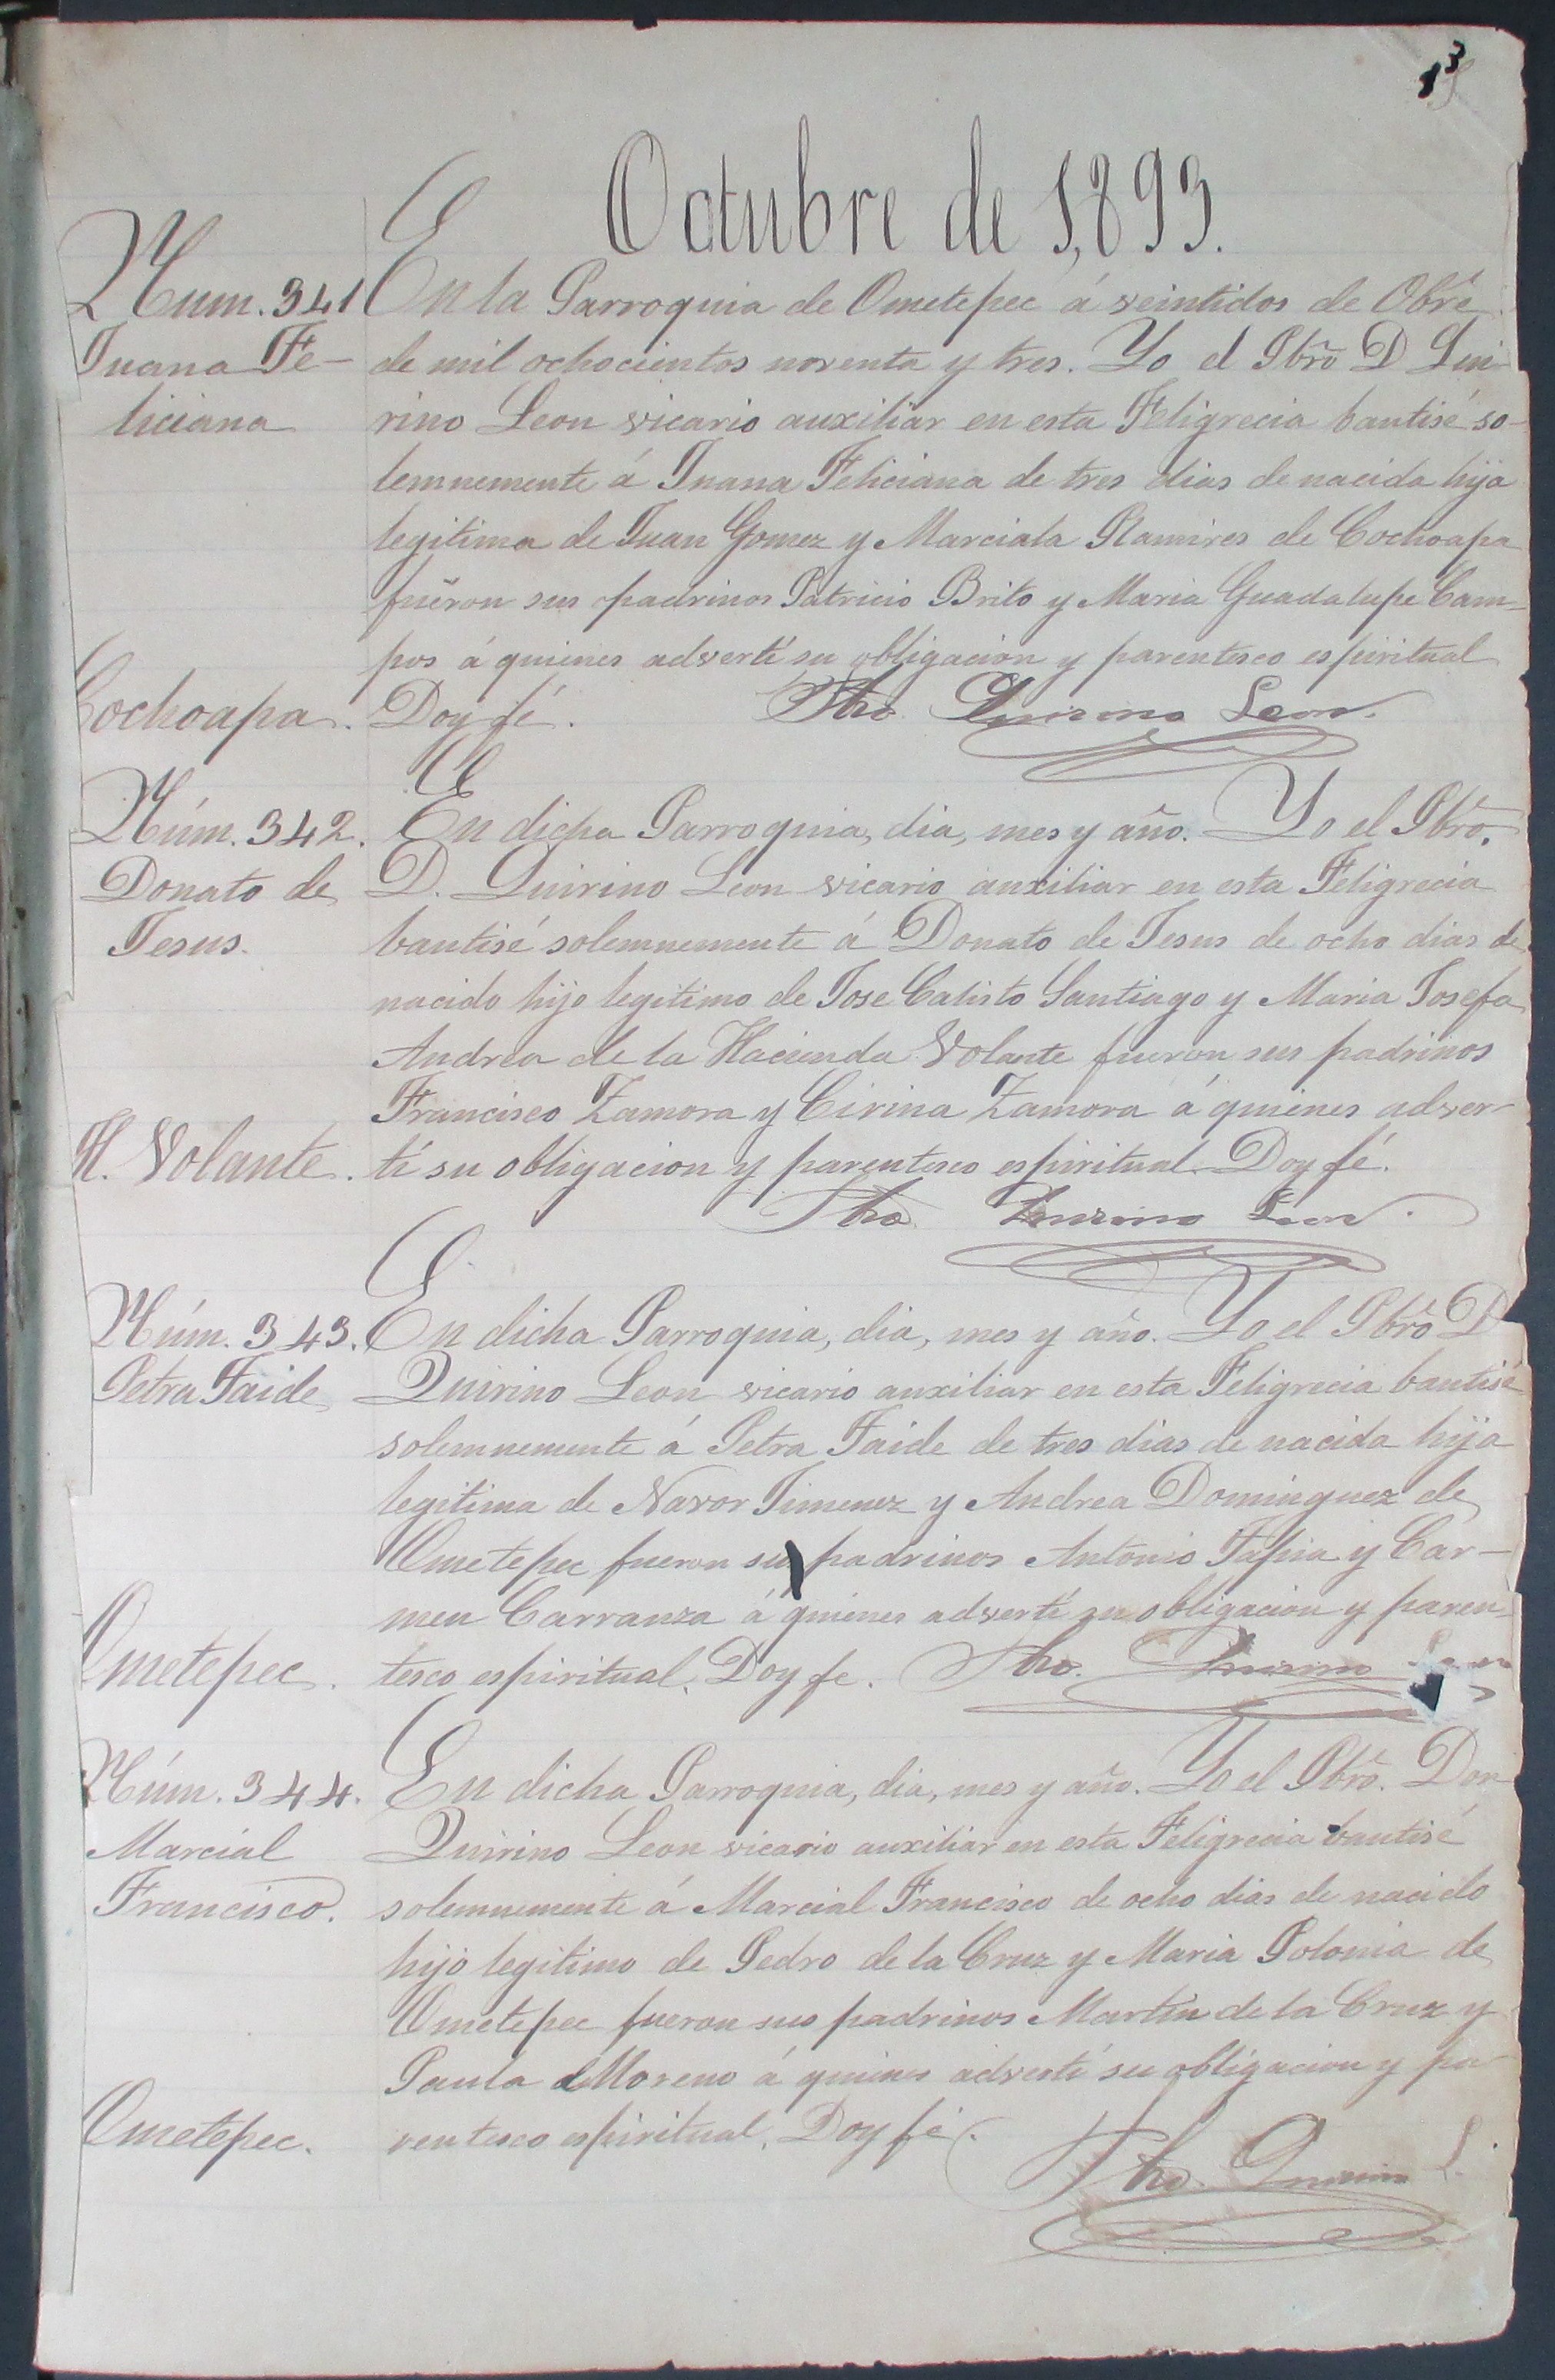 13
Octubre de 1,893.
Num. 341
Juana Fe-
liciana
Cochoapa.
En la Parroquia de Ometepec á veintidos de Obre
de mil ochocientos noventa y tres. Yo el Pbro D Qui-
rino Leon vicario auxiliar en esta Feligrecia bautisé so-
lemnemente á Juana Feliciana de tres dias de nacida hija
legitima de Juan Gomez y Marciala Ramires de Cochoapa
fueron sus padrinos Patricio Brito y Maria Guadalupe Cam-
pos á quienes advertí su obligacion y parentesco espiritual
Doy fé. Pbro. Quirino Leon.
Núm. 342.
Donato de
Jesus.
H. Volante.
En dicha Parroquia, dia, mes y año. Yo el Pbro.
D. Quirino Leon vicario auxiliar en esta Feligrecia
bautisé solemnemente á Donato de Jesus de ocho dias de
nacido hijo legitimo de Jose Calisto Santiago y Maria Josefa
Andrea de la Hacienda Volante fueron sus padrinos
Francisco Zamora y Cirina Zamora á quienes adver-
tí su obligacion y parentesco espiritual. Doy fé.
Pbro. Quirino Leon.
Núm. 343.
Petra Faide
Ometepec.
En dicha Parroquia, dia, mes y año. Yo el Pbro D
Quirino Leon vicario auxiliar en esta Feligrecia bautisé
solemnemente á Petra Faide de tres dias de nacida hija
legitima de Navor Jimenez y Andrea Dominguez de
Ometepec fueron sus padrinos Antonio Tapia y Car-
men Carranza á quienes advertí su obligacion y paren-
tesco espiritual. Doy fe. Pbro. Quirino Leon
Núm. 344.
Marcial
Francisco.
Ometepec.
En dicha Parroquia, dia, mes y año. Yo el Pbro. Don
Quirino Leon vicario auxiliar en esta Feligrecia bautisé
solemnemente á Marcial Francisco de ocho dias de nacido
hijo legitimo de Pedro de la Cruz y Maria Polonia de
Ometepec fueron sus padrinos Martin de la Cruz y
Paula Moreno á quienes advertí su obligacion y pa-
rentesco espiritual. Doy fé.
Pbro. Quirino L.